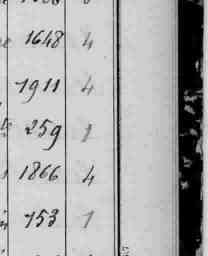 1648 4
1911 4
259 1
1866 4
153 1